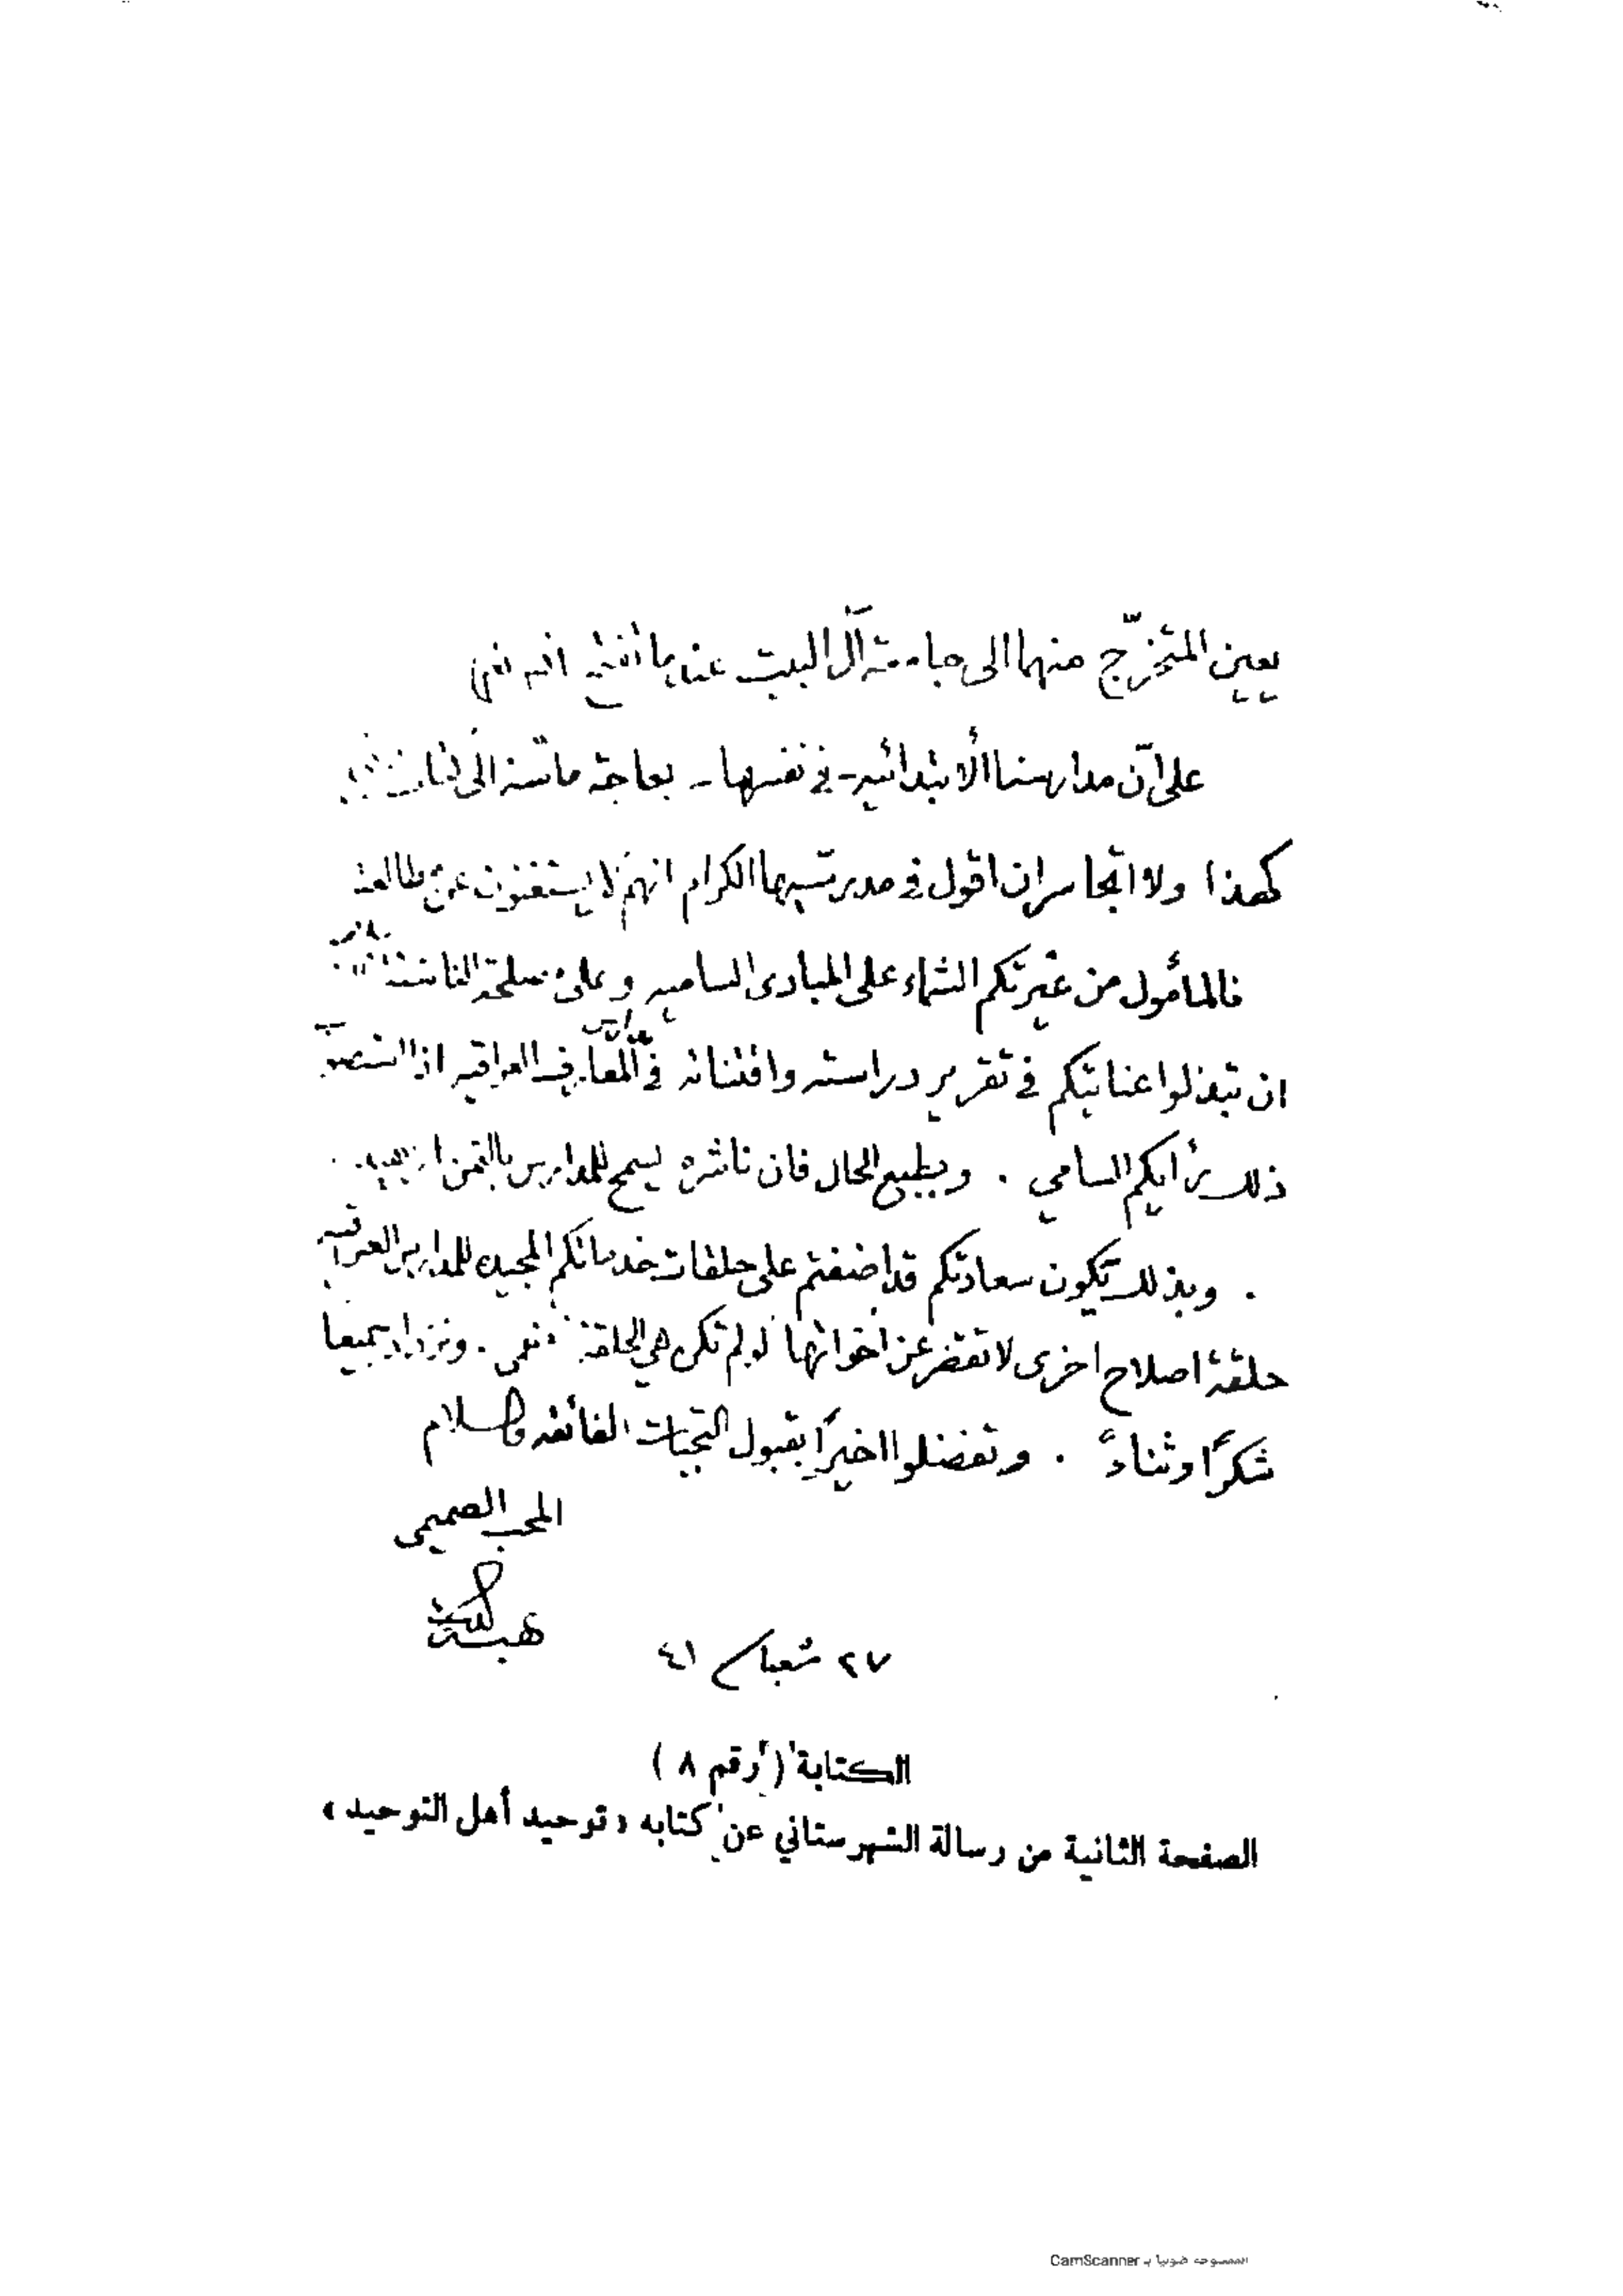 يعين المتخرّج منهما الى جامعة آل البيت عندما تفتح
على أن مدارسنا الابتدائيه - في نفسها - بحاجة ماسّة الى كتاب
كهذا ولا اتجاسر ان اقول في مدرسيها الكرام انهم لا يستغنون عن مطالعة
فالمأمول من غيرتكم الشماء على المبادى الساميه وعلى مصلحة الناشئة
ان تبذلوا عنايتكم في تقرير دراسته واقتنائه في مدارس المعارف العراقيه اذا استصوب
ذلك رأيكم السامي . وبطبيع الحال فان ناشره يسمح للمدارس بالثمن الزهيد .
. وبذلك تكون سعادتكم قد اضفتم على حلقات خدماتكم المجيده للمدارس العراقيه
حلقة اصلاح اخرى لا تقصر عن اخواتها لو لم تكن هي الحلقة . ونزداد جميعا
شكرًا وثناءً . وتفضلوا اخيرًا بقبول التحيات الفائقه والسلام
المحب الصميمى
هبة الدين
٢٧ شعبان ٤١
الكتابة (رقم ٨)
الصفحة الثانية من رسالة الشهرستاني عن كتابه «توحيد أهل التوحيد»
الممسوحة ضوئيا بـ CamScanner